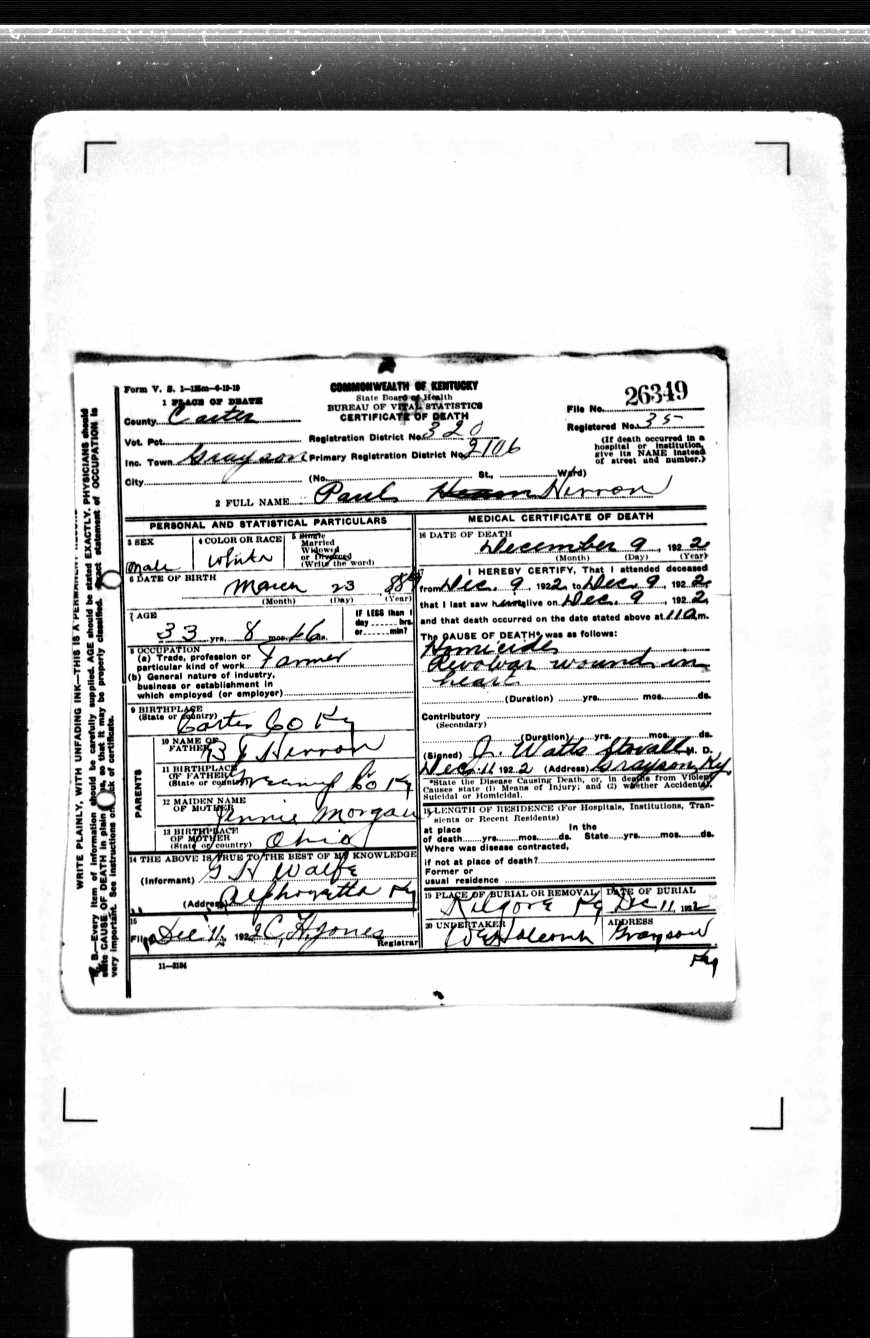 Form V. S. 1—125m—6-19-19
COMMONWEALTH OF KENTUCKY
State Board of Health
BUREAU OF VITAL STATISTICS
CERTIFICATE OF DEATH
File No. 26349
Registered No. 35
(If death occurred in a hospital or institution, give its NAME instead of street and number.)
1 PLACE OF DEATH
County Carter
Vot. Pct.
Registration District No. 320
Inc. Town Grayson Primary Registration District No. 2106
City (No. St., Ward)
2 FULL NAME Paul Herron
PERSONAL AND STATISTICAL PARTICULARS
3 SEX
Male
4 COLOR OR RACE
White
5 Single
Married
Widowed
or Divorced
(Write the word)
6 DATE OF BIRTH
March 23, 889
(Month) (Day) (Year)
7 AGE
33 yrs. 8 mos. 16 ds.
IF LESS than 1
day hrs.
or min?
8 OCCUPATION
(a) Trade, profession or
particular kind of work Farmer
(b) General nature of industry,
business or establishment in
which employed (or employer)
9 BIRTHPLACE
(State or country)
Carter Co Ky
PARENTS
10 NAME OF
FATHER B J Herron
11 BIRTHPLACE
OF FATHER
(State or country) Co Ky
12 MAIDEN NAME
OF MOTHER
Jennie Morgan
13 BIRTHPLACE
OF MOTHER
(State or country) Ohio
14 THE ABOVE IS TRUE TO THE BEST OF MY KNOWLEDGE
(Informant) G H Wolfe
(Address) Ky
15
Filed Dec 11, 1922 C H Jones
Registrar
11—3184
MEDICAL CERTIFICATE OF DEATH
16 DATE OF DEATH
December 9, 1922
(Month) (Day) (Year)
I HEREBY CERTIFY, That I attended deceased
from Dec. 9, 1922 to Dec. 9, 1922
that I last saw him alive on Dec. 9, 1922,
and that death occurred on the date stated above at 11 a m.
The CAUSE OF DEATH* was as follows:
Homicide
Revolver wound in
heart
(Duration) yrs. mos. ds.
Contributory
(Secondary)
(Duration) yrs. mos. ds.
(Signed) J. Watts Stovall, M. D.
Dec. 11 1922 (Address) Grayson, Ky.
*State the Disease Causing Death, or, in deaths from Violent
Causes state (1) Means of Injury; and (2) whether Accidental,
Suicidal or Homicidal.
18 LENGTH OF RESIDENCE (For Hospitals, Institutions, Tran-
sients or Recent Residents)
at place In the
of death yrs. mos. ds. State yrs. mos. ds.
Where was disease contracted,
if not at place of death?
Former or
usual residence
19 PLACE OF BURIAL OR REMOVAL
Kilgore Ky
DATE OF BURIAL
Dec 11, 1922
20 UNDERTAKER
W E Holcomb
ADDRESS
Grayson
Ky
WRITE PLAINLY, WITH UNFADING INK—THIS IS A PERMANENT
N. B.—Every item of information should be carefully supplied. AGE should be stated EXACTLY. PHYSICIANS should
state CAUSE OF DEATH in plain so that it may be properly classified. statement of OCCUPATION is
very important. See instructions on of certificate.